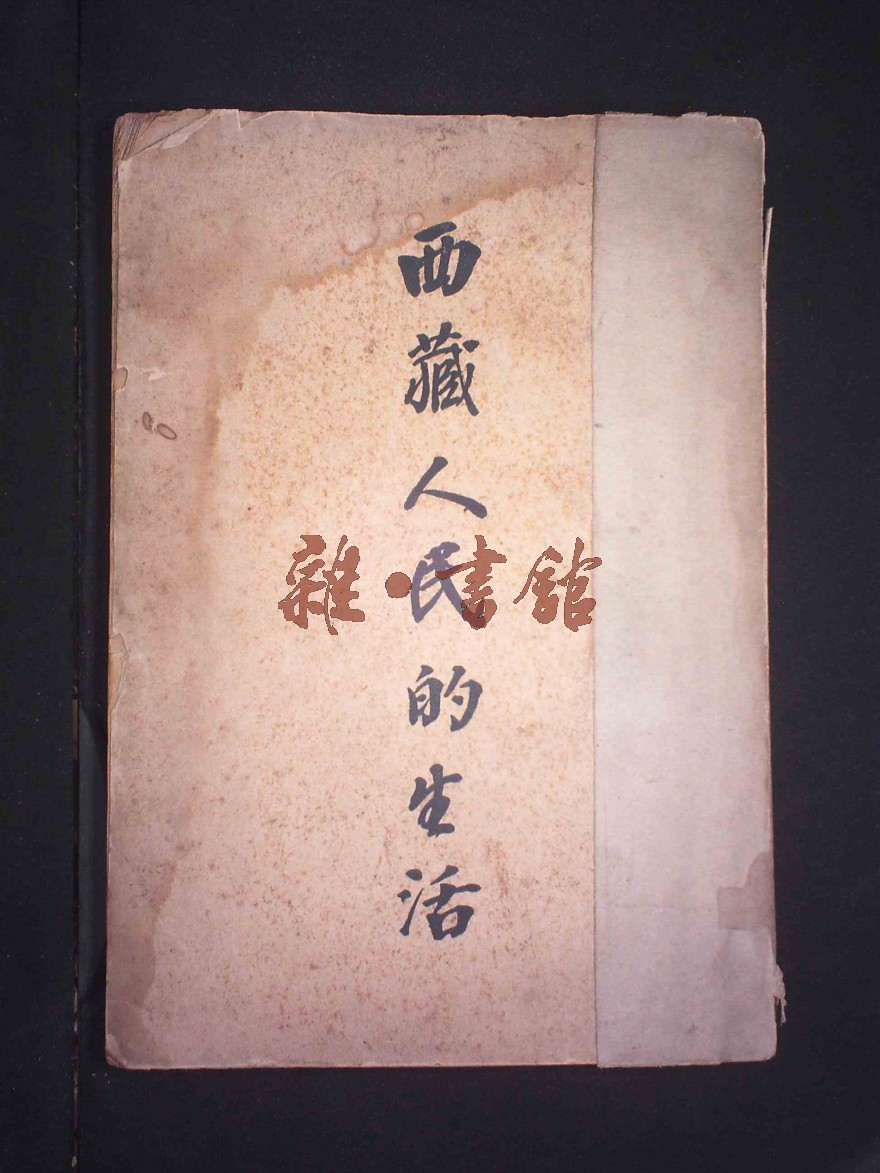 西藏人民的生活
雜·書館